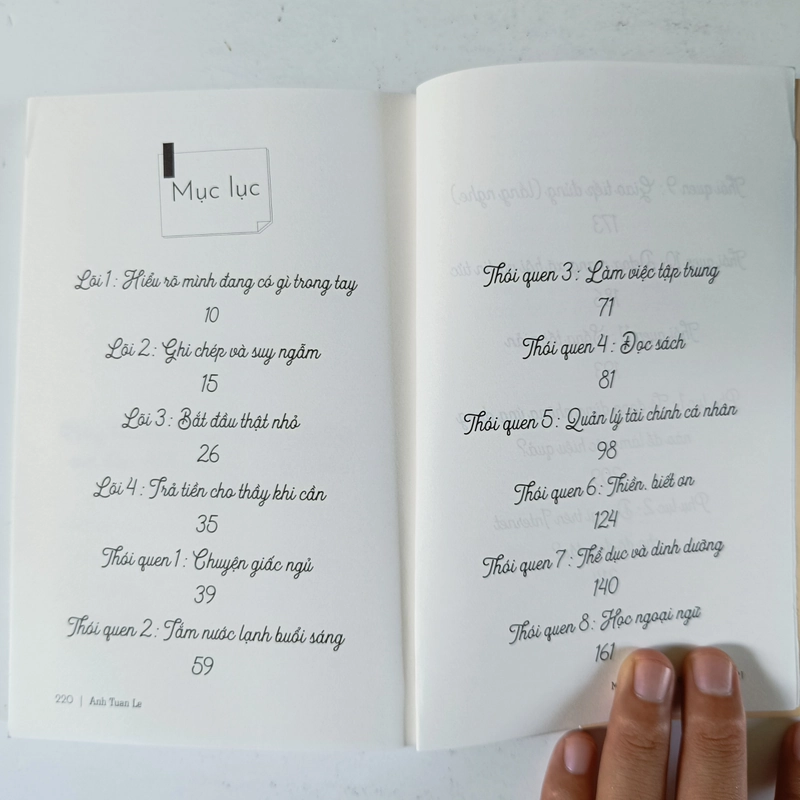 Mục lục
Lõi 1: Hiểu rõ mình đang có gì trong tay
10
Lõi 2: Ghi chép và suy ngẫm
15
Lõi 3: Bắt đầu thật nhỏ
26
Lõi 4: Trả tiền cho thầy khi cần
35
Thói quen 1: Chuyện giấc ngủ
39
Thói quen 2: Tắm nước lạnh buổi sáng
59
220 | Anh Tuan Le
Thói quen 3: Làm việc tập trung
71
Thói quen 4: Đọc sách
81
Thói quen 5: Quản lý tài chính cá nhân
98
Thói quen 6: Thiền, biết ơn
124
Thói quen 7: Thể dục và dinh dưỡng
140
Thói quen 8: Học ngoại ngữ
161